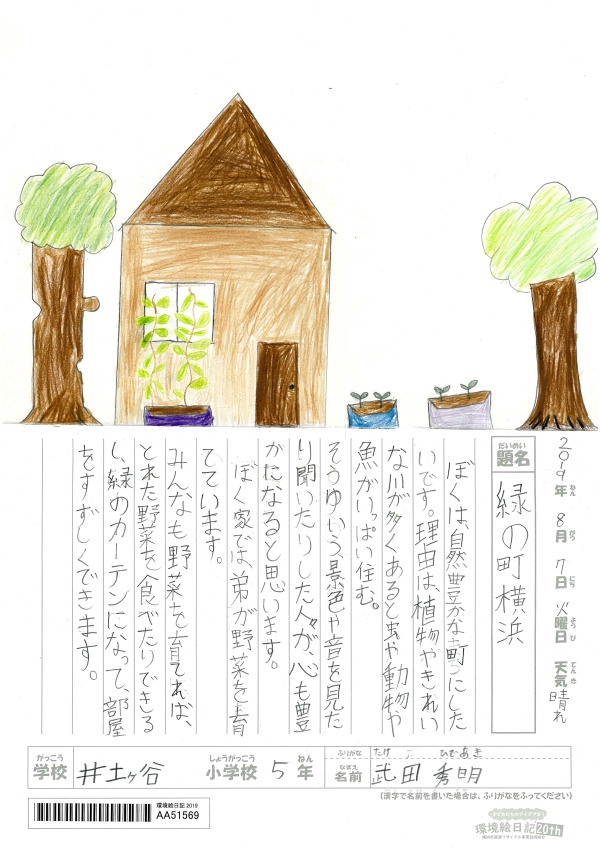 2019年 8月 7日 火曜日 天気 晴れ
ねん がつ にち ようび てんき
だいめい
題名 緑の町横浜
ぼくは、自然豊かな町にした
いです。理由は、植物やきれい
な川が多くあると虫や動物や
魚がいっぱい住む。
そうゆいう、景色や音を見た
り聞いたりした人々が、心も豊
かになると思います。
ぼく家では、弟が野菜を育
てています。
みんなも野菜を育てれば、
とれた野菜を食べたりできる
し、緑のカーテンになって、部屋
をすずしくできます。
がっこう しょうがっこう ねん
学校 井土ヶ谷 小学校 5年
ふりがな たけ だ ひであき
なまえ
名前 武田 秀明
(漢字で名前を書いた場合は、ふりがなをふってください)
環境絵日記 2019
AA51569
環境絵日記20th